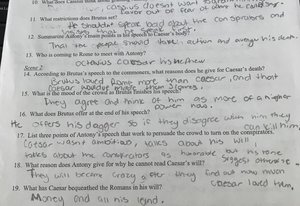 10. What does Cassius think about
Cassius doesn't want
favor out of fear of
11. What restrictions does Brutus set?
He shouldn't speak bad about the conspirators and
12. Summarize Antony's main points in his speech to Caesar's body?
That the people should take action and avenge his death.
13. Who is coming to Rome to meet with Antony?
Octavius Caesar his nephew
Scene 2:
14. According to Brutus's speech to the commoners, what reasons does he give for Caesar's death?
Brutus loved Rome more than Caesar, and that
Caesar would make them slaves.
15. What is the mood of the crowd as Brutus finishes his speech?
They agree and think of him as more of a higher
power now.
16. What does Brutus offer at the end of his speech?
He offers his dagger so if they disagree with him they
can kill him
17. List three points of Antony's speech that work to persuade the crowd to turn on the conspirators.
Caesar wasnt ambition, talks about his will
talks about the conspirators as honorable but his tone
suggests otherwise
18. What reason does Antony give for why he cannot read Caesar's will?
They will become crazy after they find out how much
Caesar loved them,
19. What has Caesar bequeathed the Romans in his will?
Money and all his land.